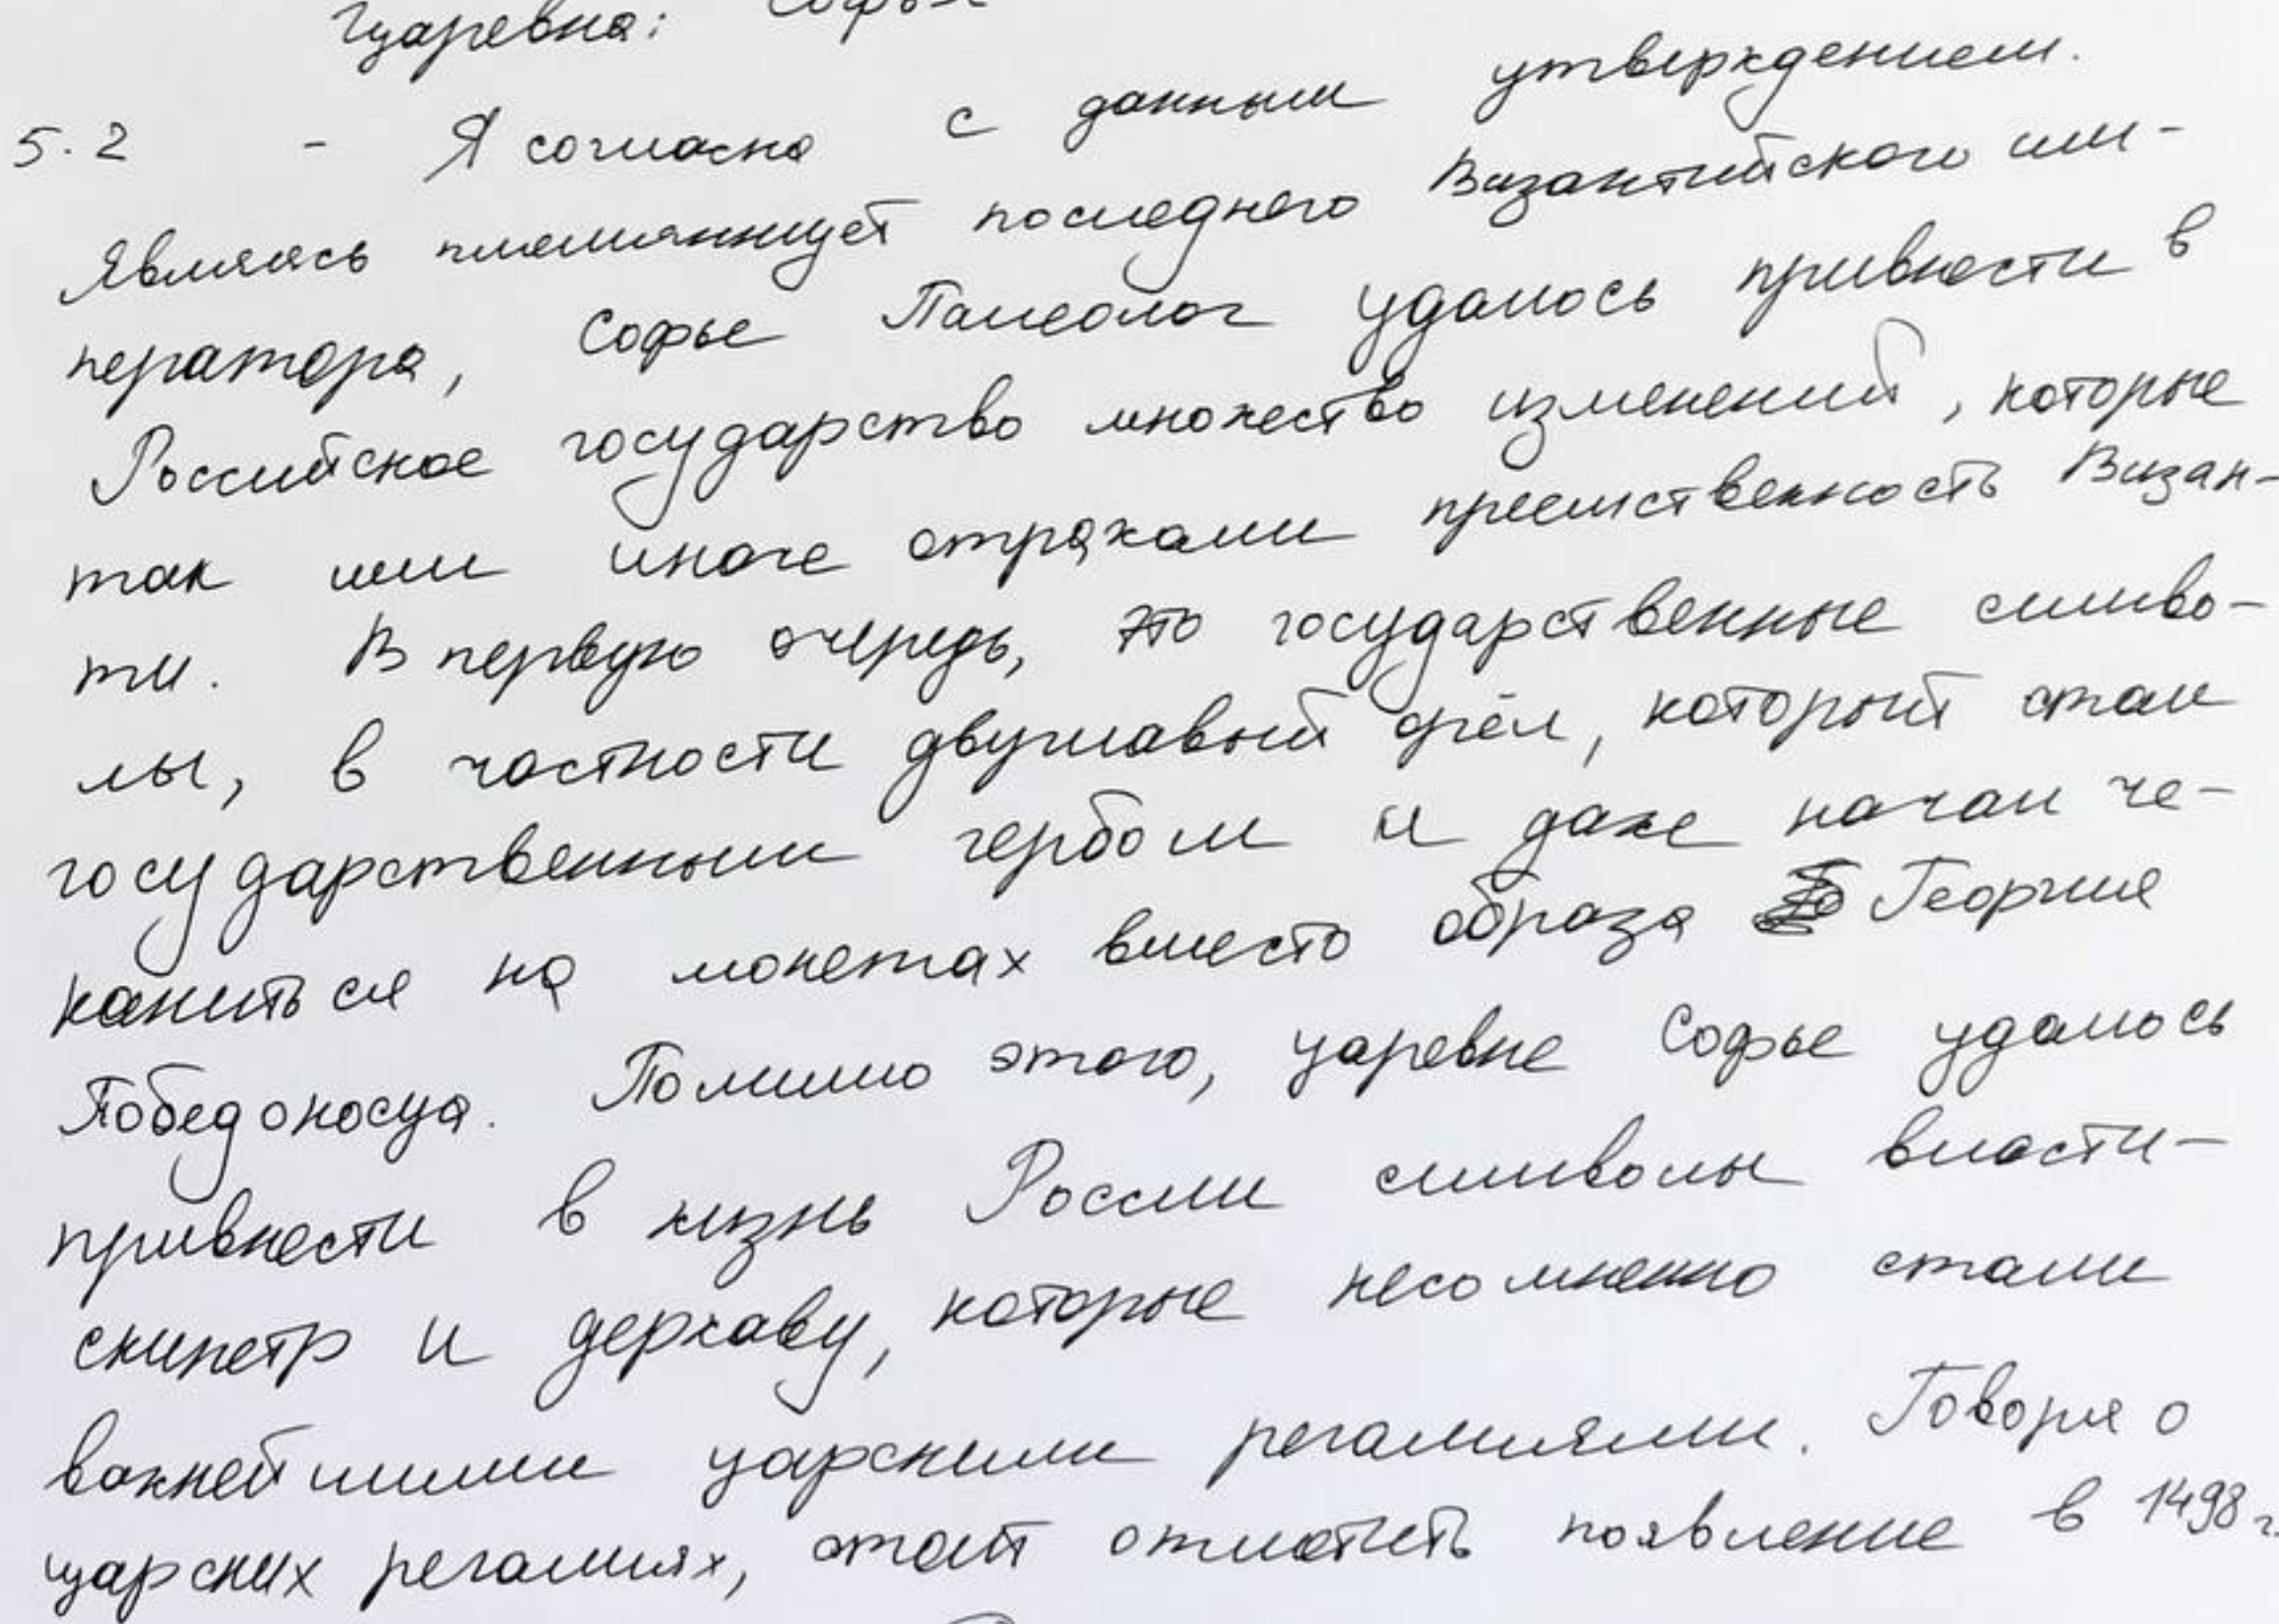 Царевна: Софья
5.2 - Я согласна с данным утверждением.
Являясь племянницей последнего Византийского им-
ператора, Софье Палеолог удалось привнести в
Российское государство множество изменений, которые
так или иначе отражали преемственность Визан-
ти. В первую очередь, это государственные симво-
лы, в частности двуглавый орёл, который стал
государственным гербом и даже начал че-
каниться на монетах вместо образа Георгия
Победоносца. Помимо этого, царевне Софье удалось
привнести в жизнь России символы власти-
скипетр и державу, которые несомненно стали
важнейшими царскими регалиями. Говоря о
царских регалиях, стоит отметить появление в 1498 г.